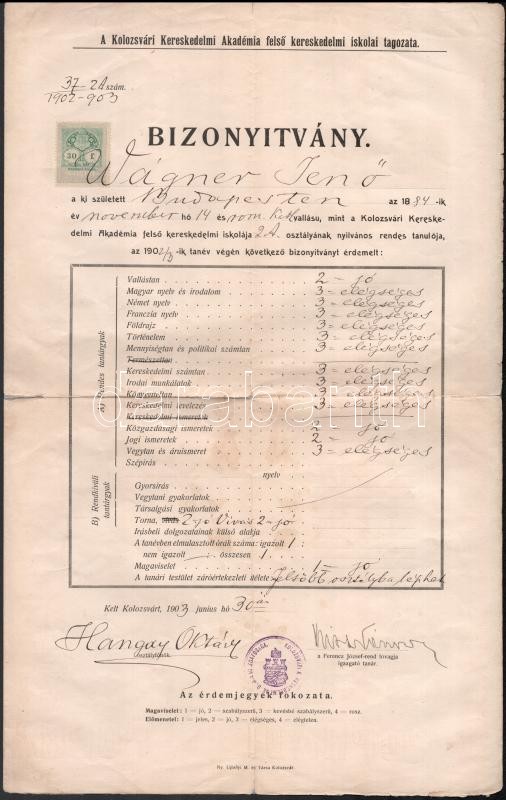 A Kolozsvári Kereskedelmi Akadémia felső kereskedelmi iskolai tagozata.
37-2A szám.
1902-903
BIZONYITVÁNY.
Wágner Jenő
a ki született Budapesten az 1884-ik
év november hó 14 és rom. kath vallásu, mint a Kolozsvári Kereske-
delmi Akadémia felső kereskedelmi iskolája 2A. osztályának nyilvános rendes tanulója,
az 1902/3-ik tanév végén következő bizonyitványt érdemelt:
A) Rendes tantárgyak
Vallástan 2 = jó
Magyar nyelv és irodalom 3 = elégséges
Német nyelv 3 = elégséges
Franczia nyelv 3 = elégséges
Földrajz 3 = elégséges
Történelem 3 = elégséges
Mennyiségtan és politikai számtan 3 = elégséges
Természettan
Kereskedelmi számtan 3 = elégséges
Irodai munkálatok 3 = elégséges
Könyvviteltan 3 = elégséges
Kereskedelmi levelezés 3 = elégséges
Kereskedelmi ismeretek
Közgazdasági ismeretek 2 = jó
Jogi ismeretek 2 = jó
Vegytan és áruismeret 3 = elégséges
Szépirás
B) Rendkivüli tantárgyak
nyelv
Gyorsirás
Vegytani gyakorlatok
Társalgási gyakorlatok
Torna, 2 = jó Vivás 2 = jó
Irásbeli dolgozatainak külső alakja
A tanévben elmulasztott órák száma: igazolt 1 :
nem igazolt összesen 1
Magaviselet 1 = jó
A tanári testület záróértekezleti itélete: felsőbb osztályba léphet
Kelt Kolozsvárt, 1903 junius hó 30 án
Hangay Oktáv
osztályfőnök.
a Ferencz József-rend lovagja
igazgató tanár.
Az érdemjegyek fokozata.
Magaviselet: 1 — jó, 2 — szabályszerü, 3 — kevésbé szabályszerü, 4 — rosz.
Előmenetel: 1 — jeles, 2 — jó, 3 — elégséges, 4 — elégtelen.
darabanth